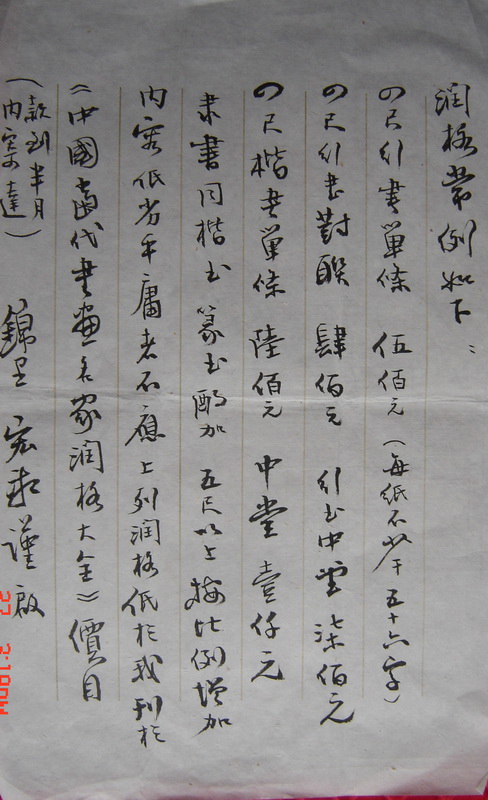 润格常例如下：
四尺行書單條　伍佰元（每紙不少于五十六字）
四尺行書對聯　肆佰元　行书中堂　柒佰元
四尺楷書單條　陸佰元　中堂　壹仟元
隶書同楷书　篆书酌加　五尺以上按比例增加
内容低劣平庸者不應　上列润格低於我刊於
《中國當代書画名家润格大全》價目
（款到半月内寄達）
錦　宏　謹啟